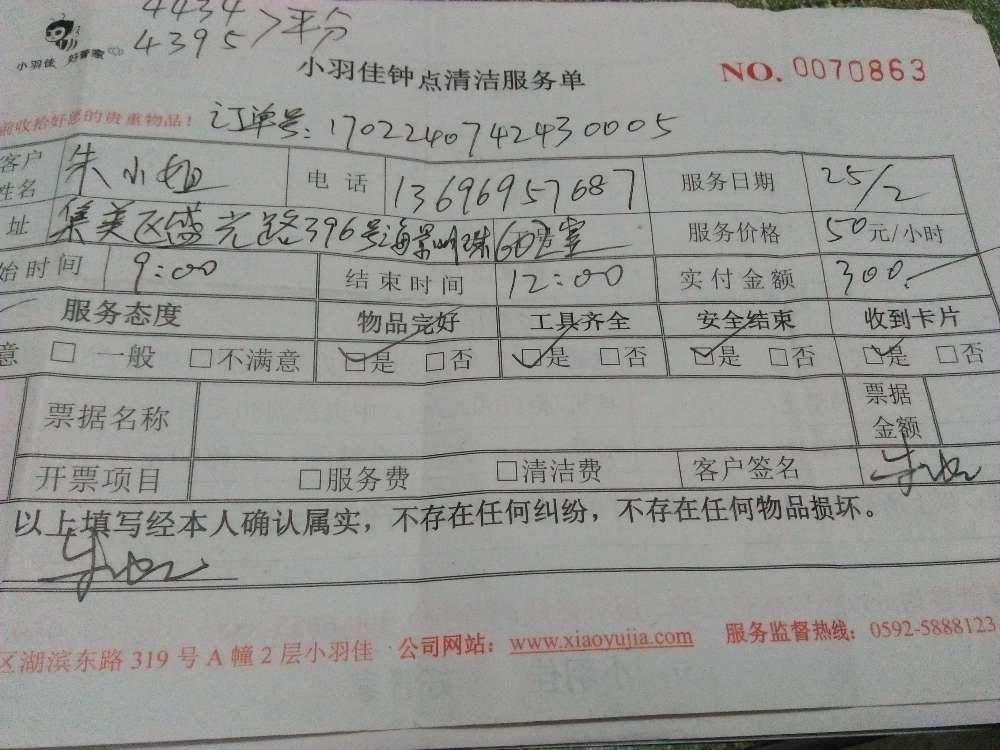 4434
4395 > 平分
小羽佳 好管家
小羽佳钟点清洁服务单 NO. 0070863
前收拾好您的贵重物品! 订单号: 17022407424430005
客户姓名 朱小姐 电话 13696957687 服务日期 25/2
址 集美区盛光路396号海景明珠 室 服务价格 50元/小时
始时间 9:00 结束时间 12:00 实付金额 300
服务态度 物品完好 工具齐全 安全结束 收到卡片
意 □ 一般 □不满意 ☑是 □否 ☑是 □否 ☑是 □否 ☑是 □否
票据名称 票据金额
开票项目 □服务费 □清洁费 客户签名 朱小姐
以上填写经本人确认属实，不存在任何纠纷，不存在任何物品损坏。
朱小姐
区湖滨东路 319 号 A 幢 2 层小羽佳 公司网站: www.xiaoyujia.com 服务监督热线: 0592-5888123